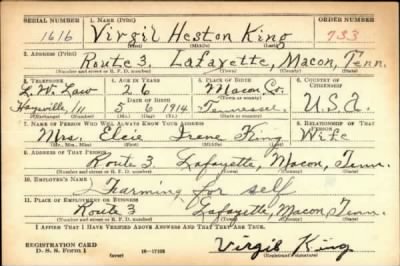 SERIAL NUMBER 1. NAME (Print) ORDER NUMBER
1616 Virgil Heston King 733
(First) (Middle) (Last)
2. ADDRESS (Print)
Route 3. Lafayette, Macon, Tenn.
(Number and street or R. F. D. number) (Town) (County) (State)
3. TELEPHONE 4. AGE IN YEARS 5. PLACE OF BIRTH 6. COUNTRY OF CITIZENSHIP
L. W. Law 26 Macon Co.
DATE OF BIRTH (Town or county)
Haysville 111 5 6 1914 Tennessee. U.S.A.
(Exchange) (Number) (Mo.) (Day) (Yr.) (State or country)
7. NAME OF PERSON WHO WILL ALWAYS KNOW YOUR ADDRESS 8. RELATIONSHIP OF THAT PERSON
Mrs. Elcie Irene King Wife
(Mr., Mrs., Miss) (First) (Middle) (Last)
9. ADDRESS OF THAT PERSON
Route 3. Lafayette, Macon, Tenn.
(Number and street or R. F. D. number) (Town) (County) (State)
10. EMPLOYER'S NAME
Farming for self
11. PLACE OF EMPLOYMENT OR BUSINESS
Route 3 Lafayette, Macon, Tenn.
(Number and street or R. F. D. number) (Town) (County) (State)
I AFFIRM THAT I HAVE VERIFIED ABOVE ANSWERS AND THAT THEY ARE TRUE.
REGISTRATION CARD
D. S. S. Form 1 16-17105 Virgil King
(Registrant's signature)